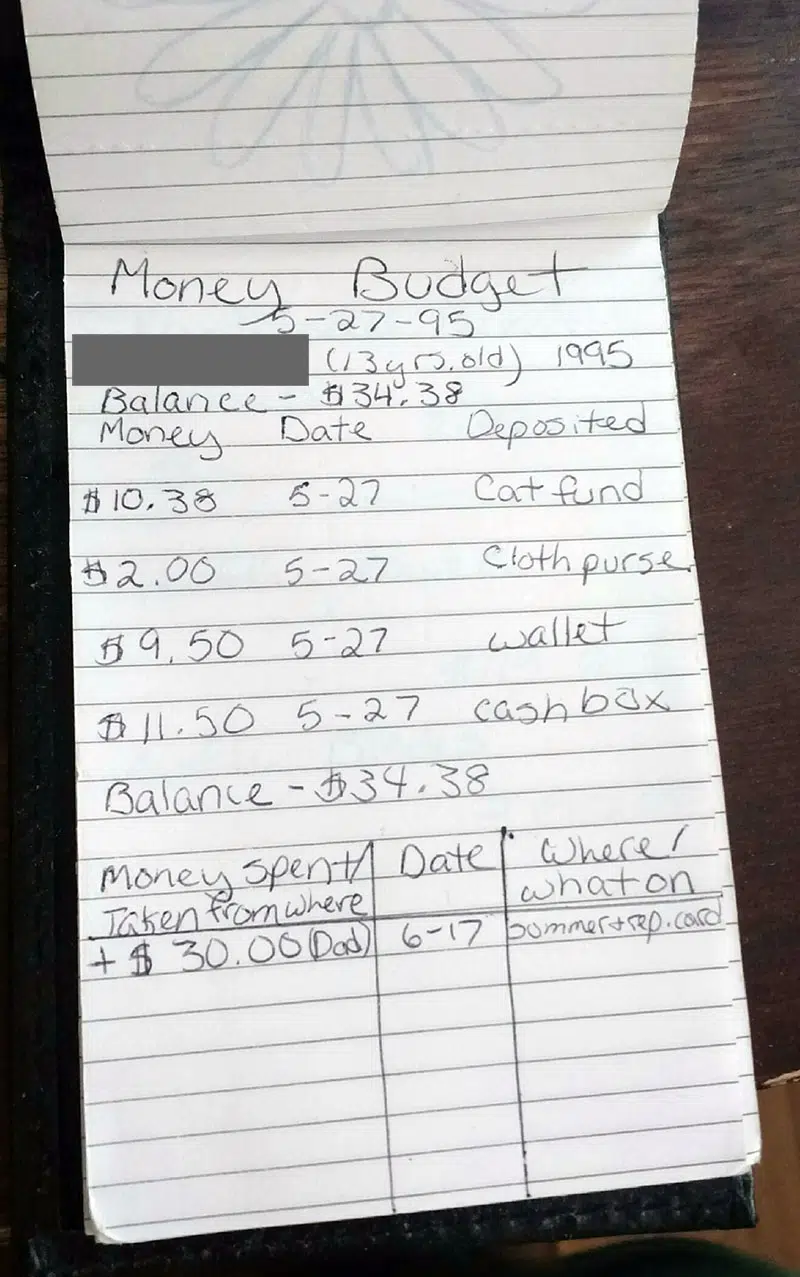 Money Budget
5-27-95
(13yrs.old) 1995
Balance - $34.38
Money Date Deposited
$10.38 5-27 Cat fund
$2.00 5-27 Cloth purse
$9.50 5-27 wallet
$11.50 5-27 cash box
Balance - $34.38
Money spent/ Date Where/
Taken from where what on
+ $30.00 (Dad) 6-17 summer+rep.card